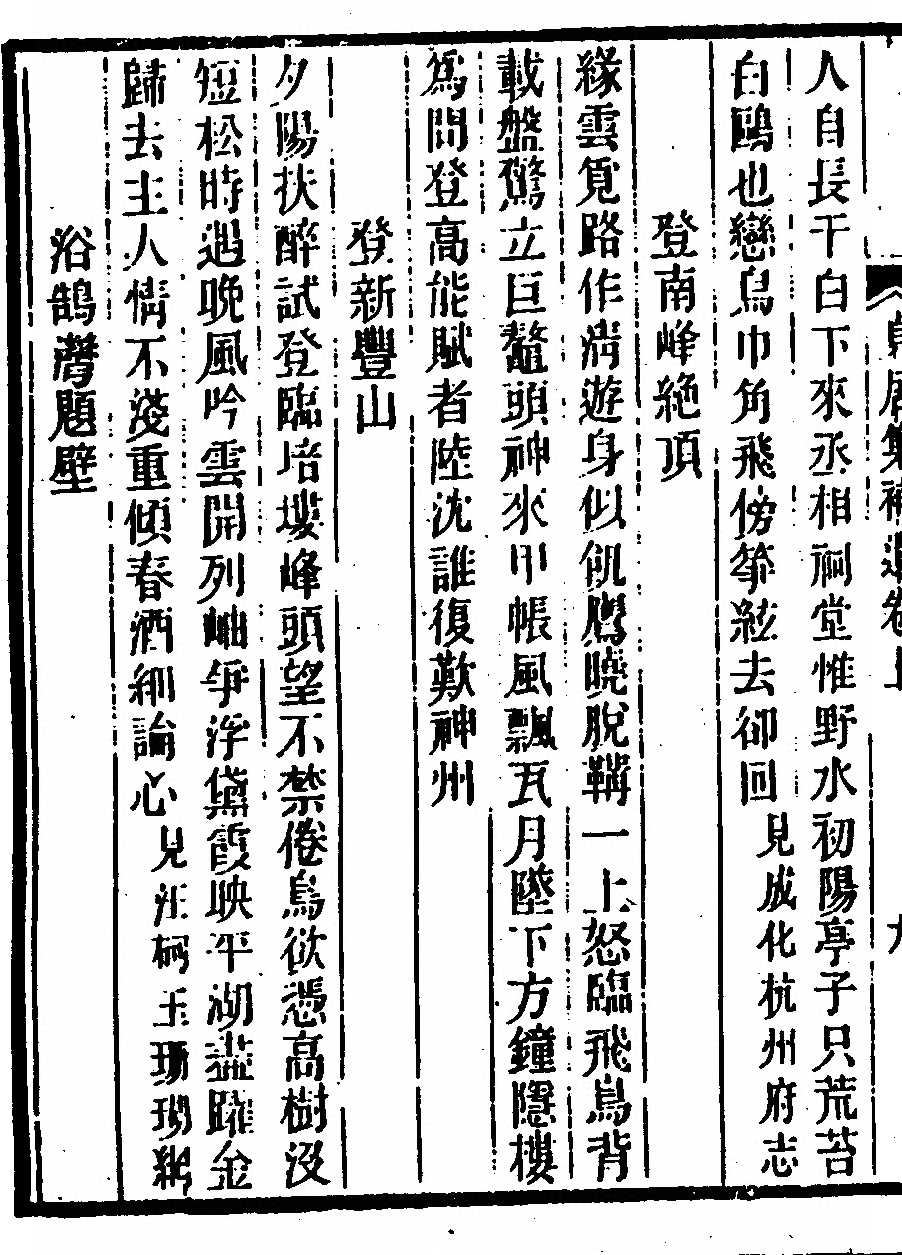 貞居集補遺卷上
九
人自長干白下來丞相祠堂惟野水初陽亭子只荒苔
白鷗也戀烏巾角飛傍箏絃去卻回 見成化杭州府志
登南峰絕頂
緣雲覓路作淸遊身似飢鷹曉脫鞲一上怒臨飛鳥背
載盤驚立巨鼇頭神來甲帳風飄瓦月墜下方鐘隱樓
爲問登高能賦者陸沈誰復歎神州
登新豐山
夕陽扶醉試登臨培塿峰頭望不禁倦鳥欲憑高樹沒
短松時遇晚風吟雲開列岫爭浮黛霞映平湖盡躍金
歸去主人情不淺重傾春酒細論心 見汪柯玉珊瑚網
浴鵠灣題壁